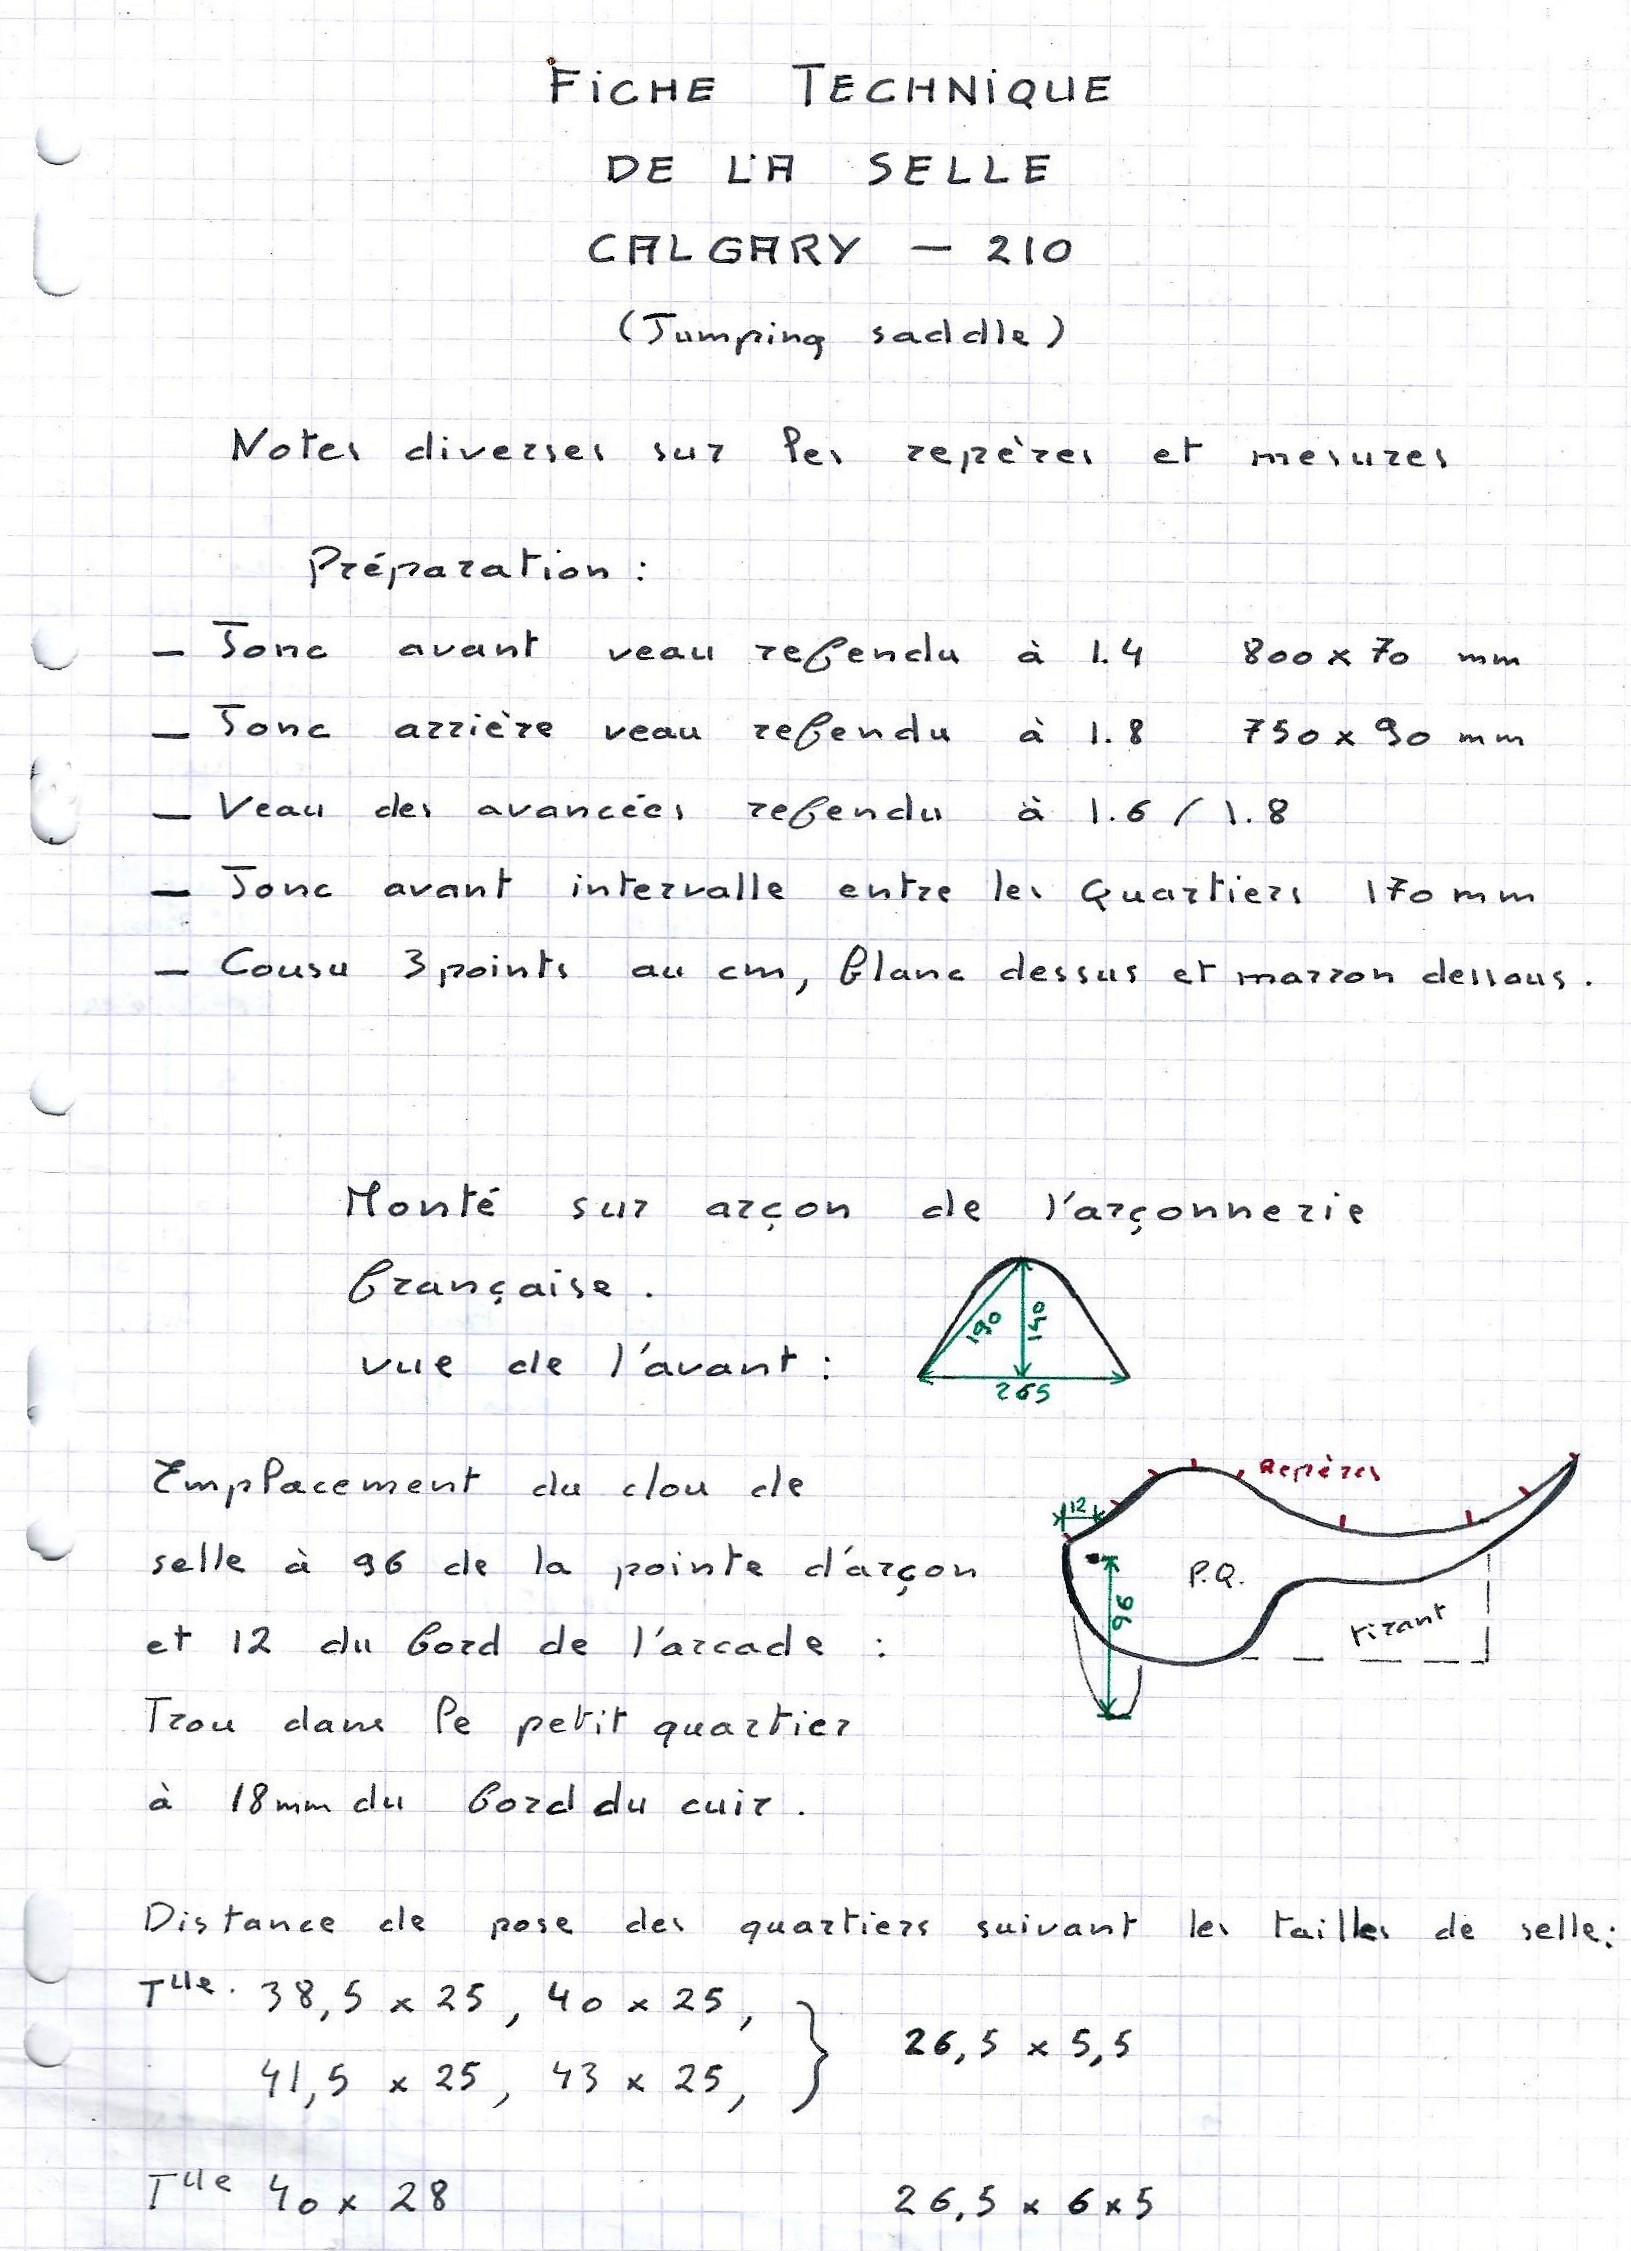 FICHE TECHNIQUE
DE LA SELLE
CALGARY – 210
(Jumping saddle)
Notes diverses sur les repères et mesures
Préparation :
– Jonc avant veau refendu à 1.4 800 x 70 mm
– Jonc arrière veau refendu à 1.8 750 x 90 mm
– Veau des avancées refendu à 1.6 / 1.8
– Jonc avant intervalle entre les Quartiers 170 mm
– Cousu 3 points au cm, blanc dessus et marron dessous.
Monté sur arçon de l'arçonnerie
française.
vue de l'avant :
190
140
265
Emplacement du clou de
selle à 96 de la pointe d'arçon
et 12 du bord de l'arcade :
Trou dans le petit quartier
à 18 mm du bord du cuir.
Repères
12
P.Q.
96
tirant
Distance de pose des quartiers suivant les tailles de selle :
Tlle. 38,5 x 25, 40 x 25,
41,5 x 25, 43 x 25, } 26,5 x 5,5
Tlle 40 x 28 26,5 x 6 x 5